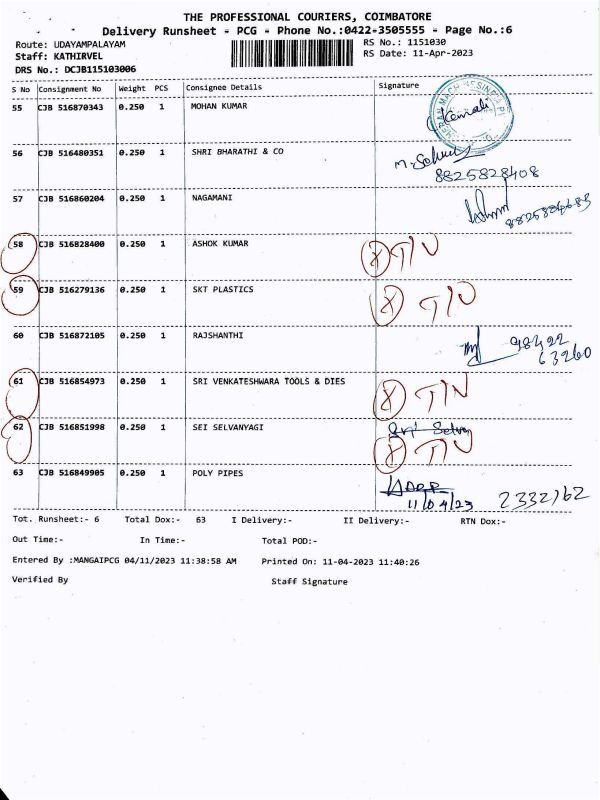 THE PROFESSIONAL COURIERS, COIMBATORE
Delivery Runsheet - PCG - Phone No.:0422-3505555 - Page No.:6
Route: UDAYAMPALAYAM
RS No.: 1151030
Staff: KATHIRVEL
RS Date: 11-Apr-2023
DRS No.: DCJB115103006
S No Consignment No Weight PCS Consignee Details Signature
55 CJB 516870343 0.250 1 MOHAN KUMAR
56 CJB 516480351 0.250 1 SHRI BHARATHI & CO
8825828408
57 CJB 516860204 0.250 1 NAGAMANI
58 CJB 516828400 0.250 1 ASHOK KUMAR X T/N
59 CJB 516279136 0.250 1 SKT PLASTICS X T/N
60 CJB 516872105 0.250 1 RAJSHANTHI 98422
63260
61 CJB 516854973 0.250 1 SRI VENKATESHWARA TOOLS & DIES X T/N
62 CJB 516851998 0.250 1 SEI SELVANYAGI Sri Selva
X T/N
63 CJB 516849905 0.250 1 POLY PIPES
11/04/23 2332162
Tot. Runsheet:- 6 Total Dox:- 63 I Delivery:- II Delivery:- RTN Dox:-
Out Time:- In Time:- Total POD:-
Entered By :MANGAIPCG 04/11/2023 11:38:58 AM Printed On: 11-04-2023 11:40:26
Verified By Staff Signature